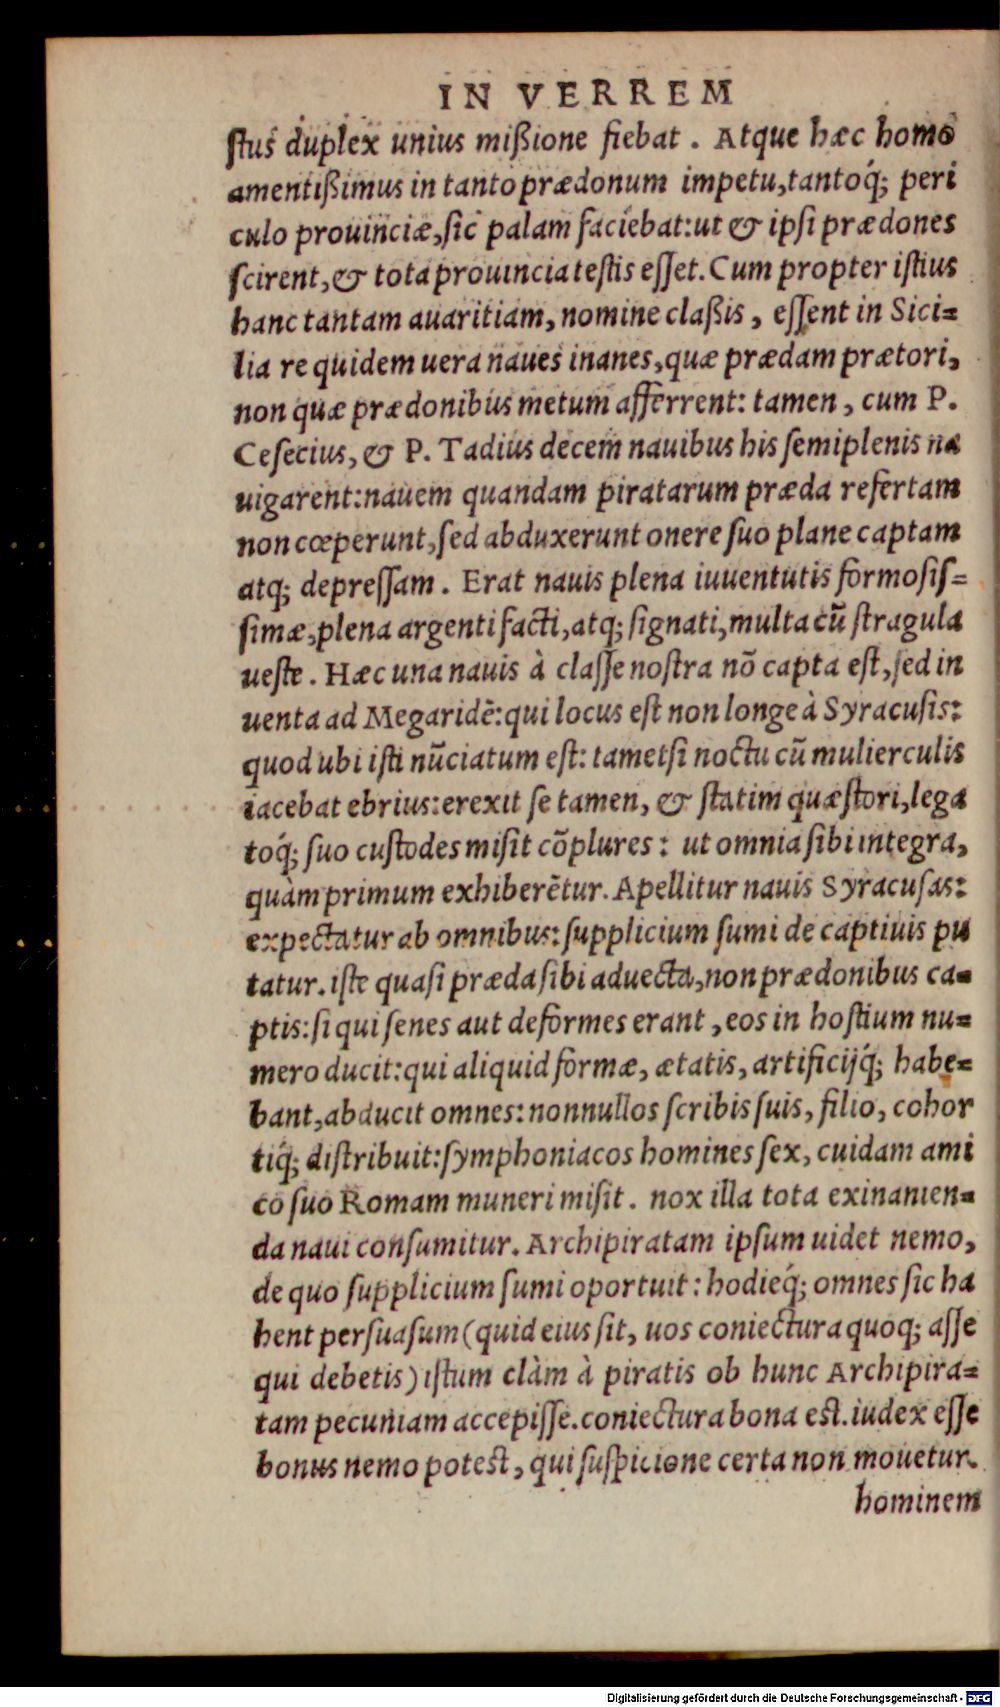 IN VERREM
ſtus duplex unius mißione fiebat. Atque hæc homo
amentißimus in tanto prædonum impetu, tantoq́; peri
culo prouinciæ, ſic palam faciebat: ut & ipſi prædones
ſcirent, & tota prouincia teſtis eſſet. Cum propter iſtius
hanc tantam auaritiam, nomine claßis, eſſent in Sici-
lia re quidem uera naues inanes, quæ prædam prætori,
non quæ prædonibus metum afferrent: tamen, cum P.
Ceſecius, & P. Tadius decem nauibus his ſemiplenis na
uigarent: nauem quandam piratarum præda refertam
non cœperunt, ſed abduxerunt onere ſuo plane captam
atq; depreſſam. Erat nauis plena iuuentutis formoſiſ-
ſimæ, plena argenti facti, atq; ſignati, multa cũ ſtragula
ueſte. Hæc una nauis à claſſe noſtra nõ capta eſt, ſed in
uenta ad Megaridẽ: qui locus eſt non longe à Syracuſis:
quod ubi iſti nũciatum eſt: tametſi noctu cũ mulierculis
iacebat ebrius: erexit ſe tamen, & ſtatim quæſtori, lega
toq́; ſuo cuſtodes miſit cõplures: ut omnia ſibi integra,
quàm primum exhiberẽtur. Apellitur nauis Syracuſas:
expectatur ab omnibus: ſupplicium ſumi de captiuis pu
tatur. iſte quaſi præda ſibi aduecta, non prædonibus ca-
ptis: ſi qui ſenes aut deformes erant, eos in hoſtium nu-
mero ducit: qui aliquid formæ, ætatis, artificijq́; habe-
bant, abducit omnes: nonnullos ſcribis ſuis, filio, cohor
tiq́; diſtribuit: ſymphoniacos homines ſex, cuidam ami
co ſuo Romam muneri miſit. nox illa tota exinanien-
da naui conſumitur. Archipiratam ipſum uidet nemo,
de quo ſupplicium ſumi oportuit: hodieq́; omnes ſic ha
bent perſuaſum (quid eius ſit, uos coniectura quoq; aſſe
qui debetis) iſtum clàm à piratis ob hunc Archipira-
tam pecuniam accepiſſe. coniectura bona eſt. iudex eſſe
bonus nemo poteſt, qui ſuſpicione certa non mouetur.
hominem
Digitalisierung gefördert durch die Deutsche Forschungsgemeinschaft - DFG